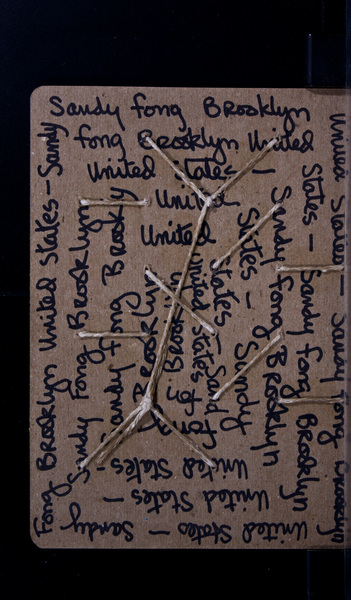 Sandy Fong Brooklyn
Fong Brooklyn United
United States -
United
United
United States - Sandy
Fong Brooklyn United States - Sandy
Sandy Fong Brooklyn
Sandy Fong Brooklyn
Brooklyn
United States
States - Sandy
States - Sandy
Sandy Fong Brooklyn
States - Sandy Fong Brooklyn
United States - Sandy Fong Brooklyn
United States -
United States -
United States - Sandy